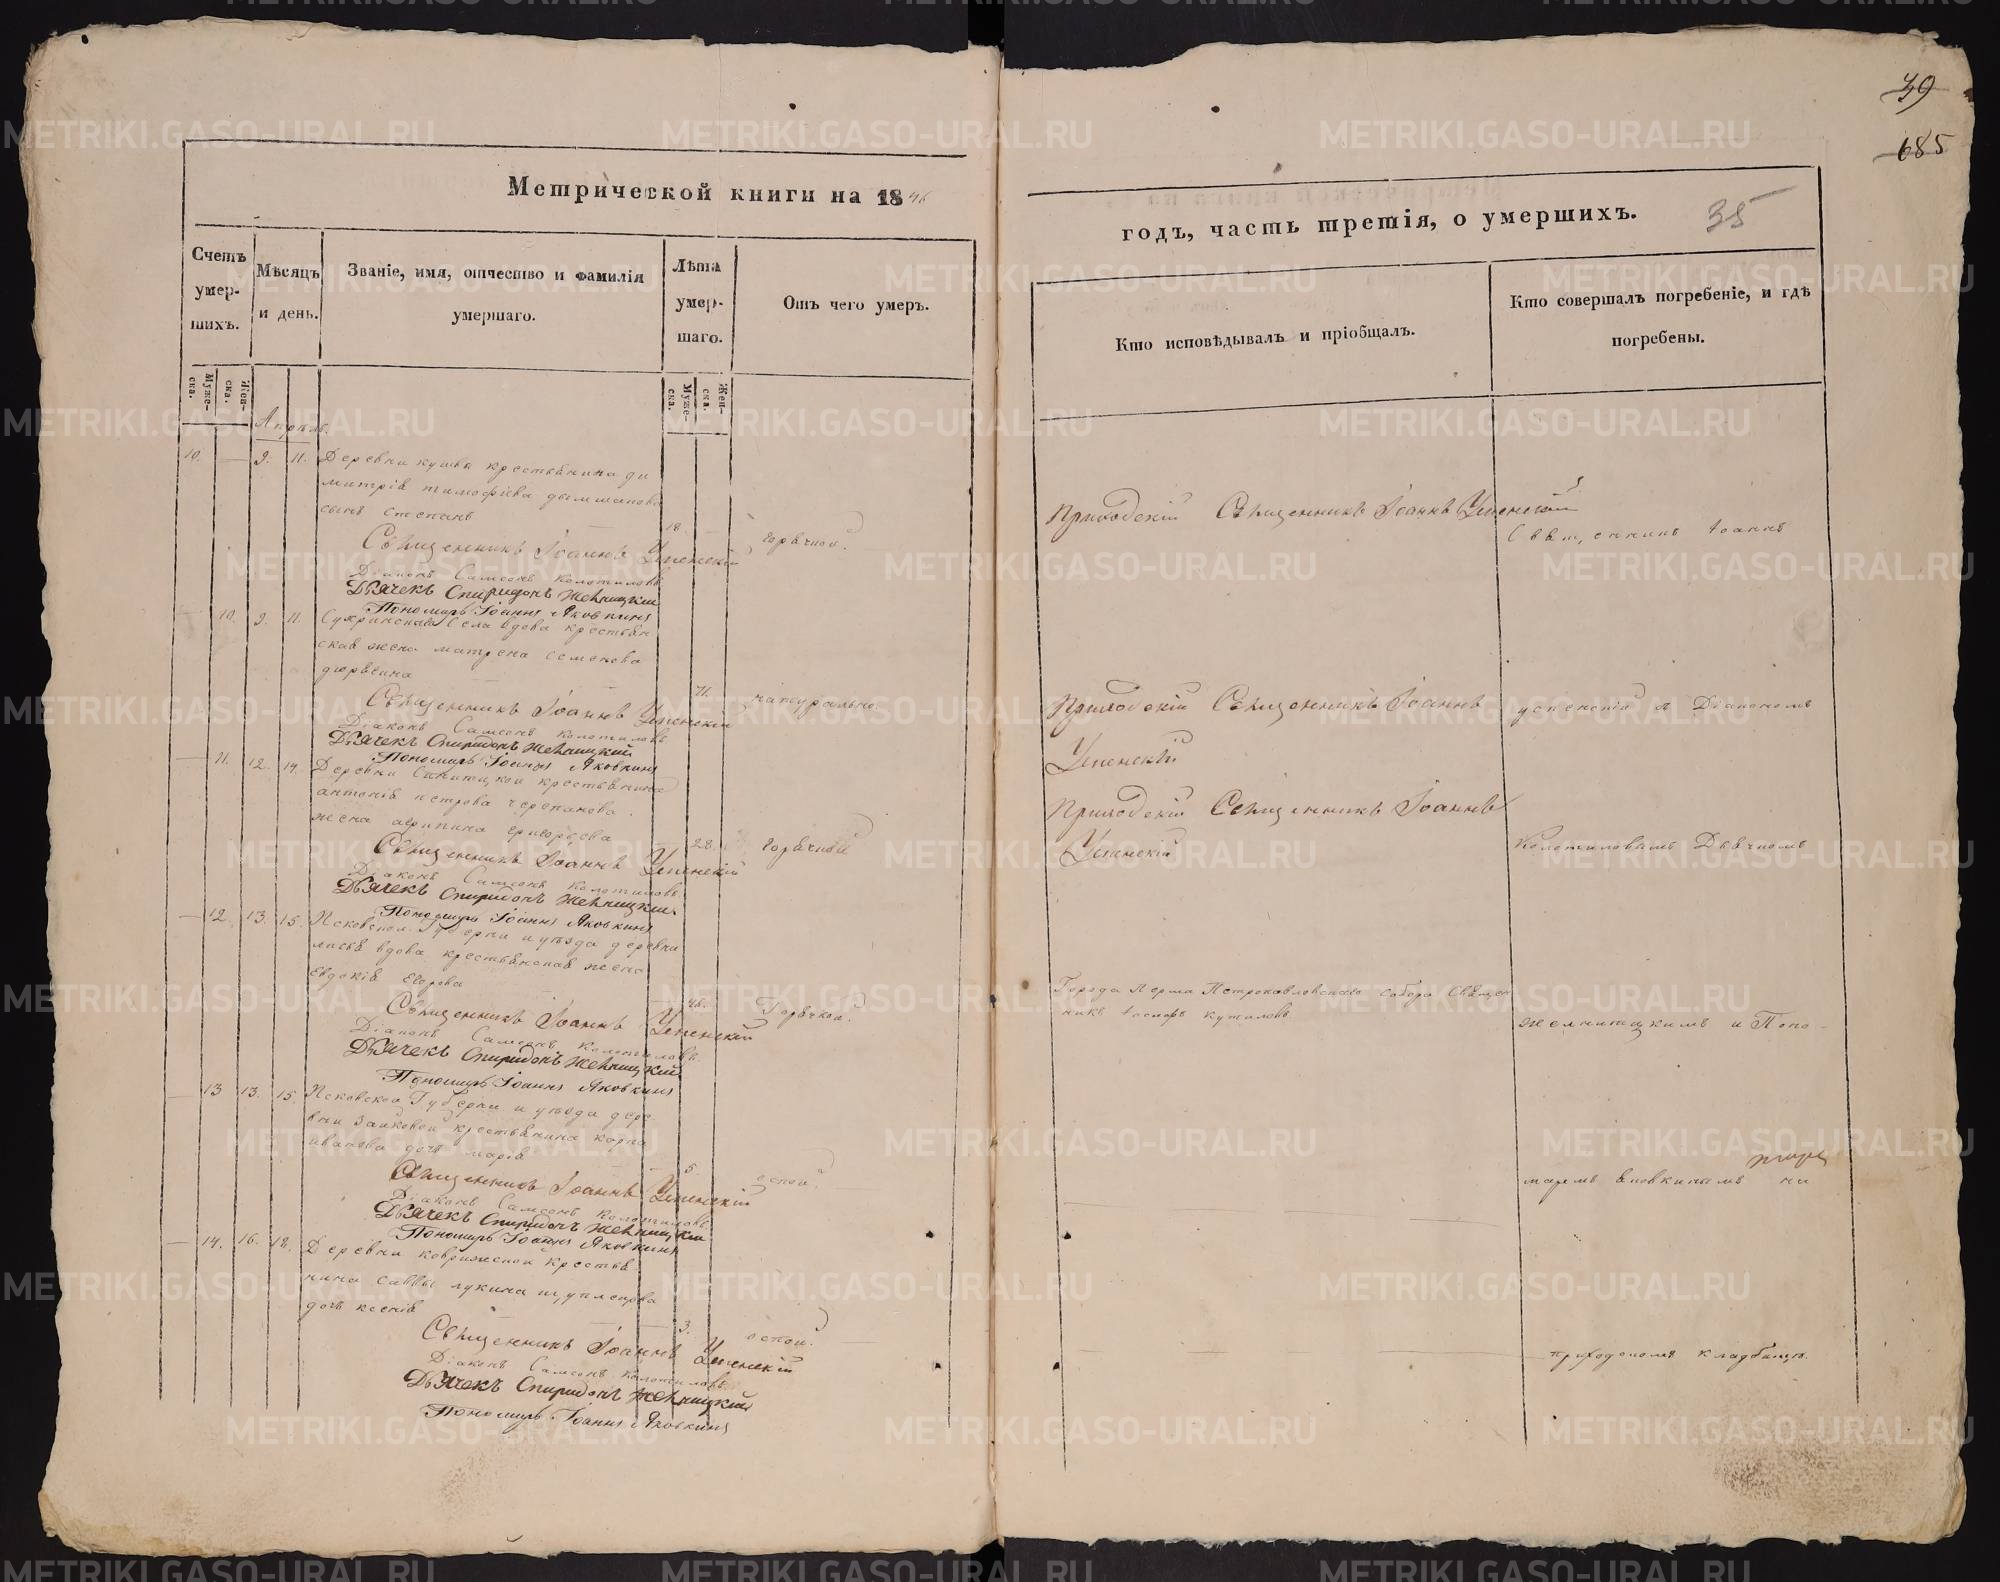 39
685
35
Метрической книги на 1846
годъ, часть третія, о умершихъ.
Счетъ умер-шихъ.
Мѣсяцъ и день.
Званіе, имя, отчество и фамилія умершаго.
Лѣта умер-шаго.
Отъ чего умеръ.
Кто исповѣдывалъ и пріобщалъ.
Кто совершалъ погребеніе, и гдѣ погребены.
Муже-ска.
Жен-ска.
Муже-ска.
Жен-ска.
Апрѣль
10. — 9. 11. Деревни кушвы крестьянина ди
митрія тимофѣева
сынъ степанъ
18. горячкой.
Священникъ Іоаннъ Успенскій
Діаконъ Самсонъ Колотиловъ
Дьячекъ Спиридонъ Желницкій
Пономарь Іоаннъ Яковкинъ
Приходскій Священникъ Іоаннъ Успенскій
Священникъ Іоаннъ
— 10. 9. 11. села вдова крестьян
ская жена матрена семенова
71. натурально.
Священникъ Іоаннъ Успенскій
Діаконъ Самсонъ Колотиловъ
Дьячекъ Спиридонъ Желницкій
Пономарь Іоаннъ Яковкинъ
Приходскій Священникъ Іоаннъ
Успенскій
успенскій съ Діакономъ
— 11. 12. 14. Деревни крестьянина
антонія петрова черепанова
жена агрипина григорьева
28. горячкой
Священникъ Іоаннъ Успенскій
Діаконъ Самсонъ Колотиловъ
Дьячекъ Спиридонъ Желницкій
Пономарь Іоаннъ Яковкинъ
Приходскій Священникъ Іоаннъ
Успенскій
Колотиловымъ Дьячкомъ
— 12. 13. 15. Псковской Губерни и уѣзда деревни
вдова крестьянская жена
Евдокія Егорова
46. Горячкой.
Священникъ Іоаннъ Успенскій
Діаконъ Самсонъ Колотиловъ
Дьячекъ Спиридонъ Желницкій
Пономарь Іоаннъ Яковкинъ
Города Перма Петропавловскаго собора Священ
никъ
желницкимъ и Поно-
— 13 13. 15. Псковской Губерни и уѣзда дере
вни крестьянина карпа
иванова дочь марія
5. оспой.
Священникъ Іоаннъ Успенскій
Діаконъ Самсонъ Колотиловъ
Дьячекъ Спиридонъ Желницкій
Пономарь Іоаннъ Яковкинъ
маремъ яковкинымъ на
— 14. 16. 18. Деревни крестья
нина саввы лукина
дочь ксенія
3. оспой.
Священникъ Іоаннъ Успенскій
Діаконъ Самсонъ Колотиловъ
Дьячекъ Спиридонъ Желницкій
Пономарь Іоаннъ Яковкинъ
приходскомъ кладбищѣ.
METRIKI.GASO-URAL.RU